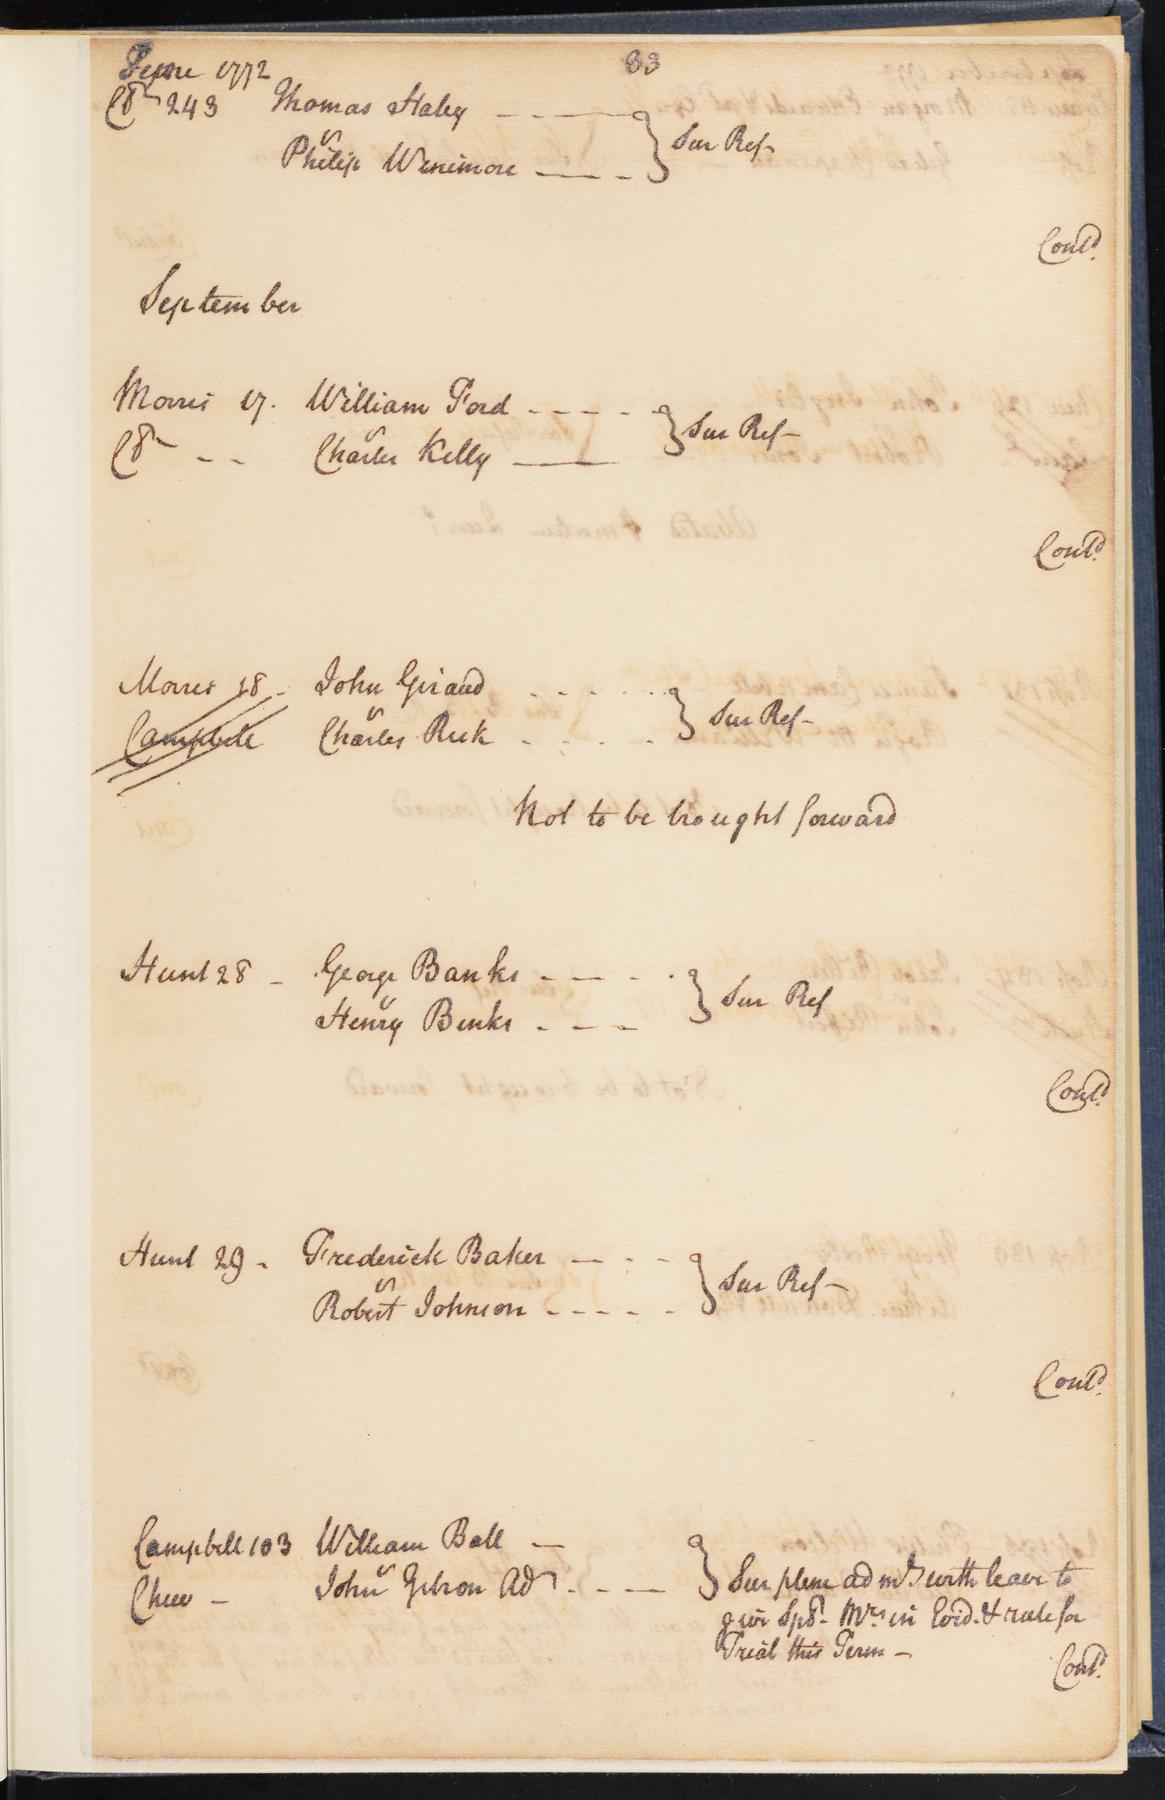 June 1772
33
C8r 243 Thomas Haley
vs
Philip Winemore } Sur Ref
Contd.
September
Morris 17. William Ford
vs
Charles Kelly } Sur Ref
Contd.
Morris 18 John Giraud
vs
Campbell Charles Risk } Sur Ref
Not to be brought forward
Hunt 28 George Banks
vs
Henry Benks } Sur Ref
Contd.
Hunt 29 Frederick Baker
vs
Robert Johnson } Sur Ref
Contd.
Campbell 103 William Ball
vs
Chew John Gibson Adr } Sur plene admt with leave to
give Spl. Mrs in Evid. & rule for
Trial this Term
Contd.